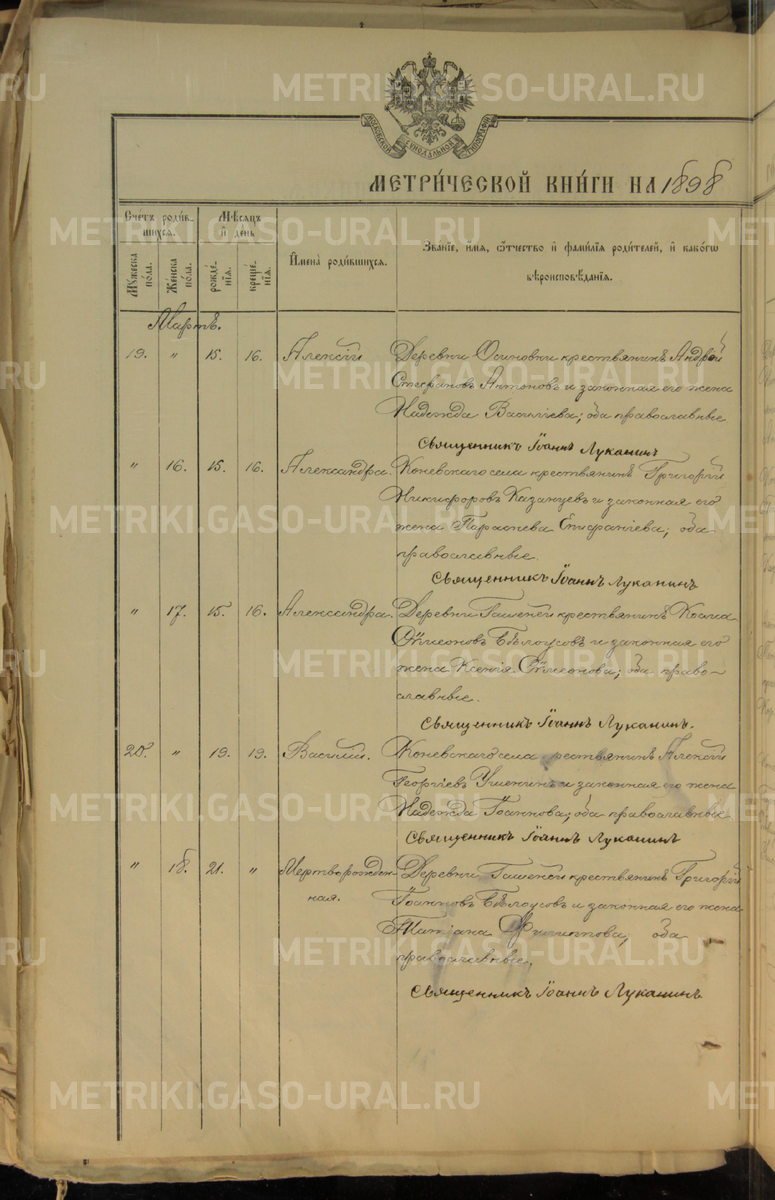 МОСКОВСКОЙ СѴНОДАЛЬНОЙ ТИПОГРАФІИ
МЕТРИ́ЧЕСКОЙ КНИ́ГИ НА 1898
Сче́тъ роди́в-
шихся.
Мѣ́сяцъ
и҆ де́нь
Мꙋ́жеска
по́ла.
Же́нска
по́ла.
рожде́-
нїѧ.
креще́-
нїѧ.
И҆мена̀ роди́вшихся.
Зва́нїе, и҆́мя, ѻ҆́тчество и҆ фамі́лїя роди́телей, и҆ како́гѡ
вѣроисповѣ́данїя.
Мартъ.
19. " 15. 16. Алексій Деревни Осиновки крестьянинъ Андрей
Стефановъ Антоновъ и законная его жена
Надежда Василіева; оба православные
Священникъ Іоаннъ Луканинъ
" 16. 15. 16. Александра. Коневскаго села крестьянинъ Григорій
Никифоровъ Казанцевъ и законная его
жена Параскева Епифаніева; оба
православные.
Священникъ Іоаннъ Луканинъ
" 17. 15. 16. Александра. Деревни крестьянинъ Косма
Сѵмеоновъ Бѣлоусовъ и законная его
жена Ксенія Сѵмеонова; оба право-
славные.
Священникъ Іоаннъ Луканинъ.
20. " 19. 19. Василій. Коневскаго села крестьянинъ Алексій
Георгіевъ и законная его жена
Надежда Іоаннова; оба православные
Священникъ Іоаннъ Луканинъ
" 18. 21. " Мертворожден- Деревни крестьянинъ Григорій
ная. Іоанновъ Бѣлоусовъ и законная его жена
Татіана Филиппова; оба
православные.
Священникъ Іоаннъ Луканинъ
METRIKI.GASO-URAL.RU